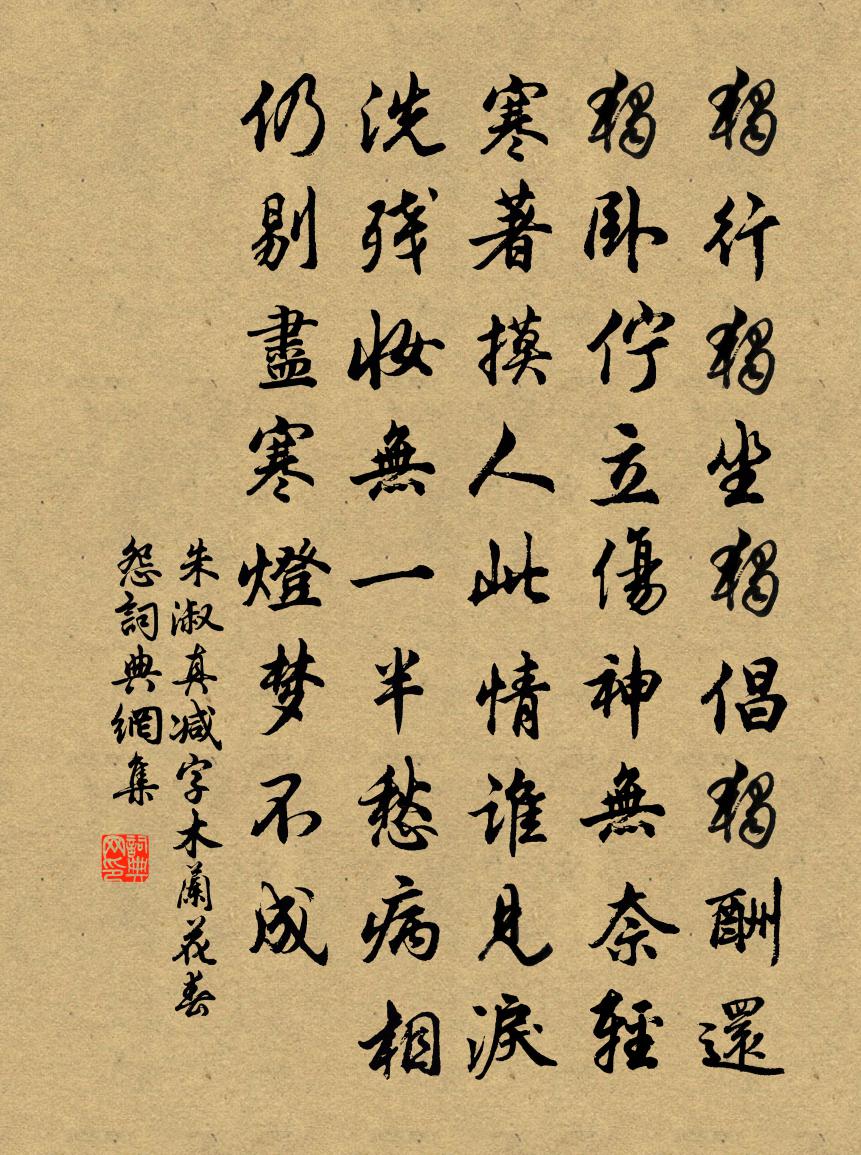 獨行獨坐獨倡獨酬還
獨卧佇立傷神無奈輕
寒著摸人此情誰見淚
洗残妝無一半愁病相
仍剔盡寒燈梦不成
朱淑真减字木蘭花春
怨詞典網集
詞典網印